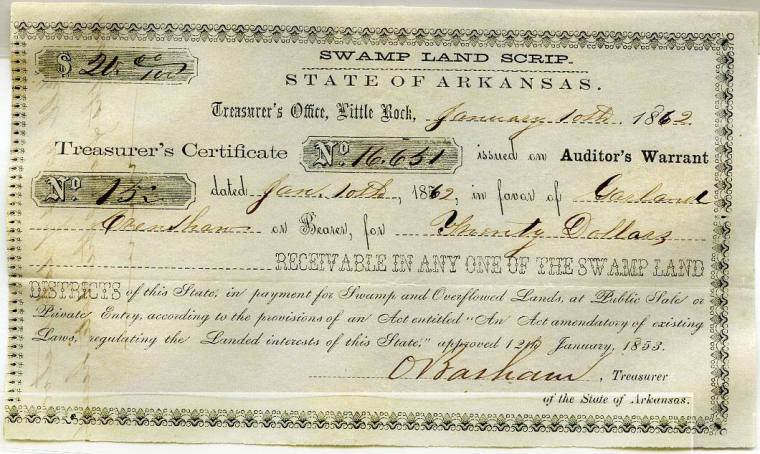 SWAMP LAND SCRIP.
$ 20.00/100
STATE OF ARKANSAS.
Treasurer's Office, Little Rock, January 10th 1862
Treasurer's Certificate No. 16.651 issued on Auditor's Warrant
No. 15 dated Jan. 10th, 1862, in favor of Garland
Crenshaw or Bearer, for Twenty Dollars
RECEIVABLE IN ANY ONE OF THE SWAMP LAND
DISTRICTS of this State, in payment for Swamp and Overflowed Lands, at Public Sale or
Private Entry, according to the provisions of an Act entitled "An Act amendatory of existing
Laws, regulating the Landed interests of this State," approved 12th January, 1853.
O Basham, Treasurer
of the State of Arkansas.